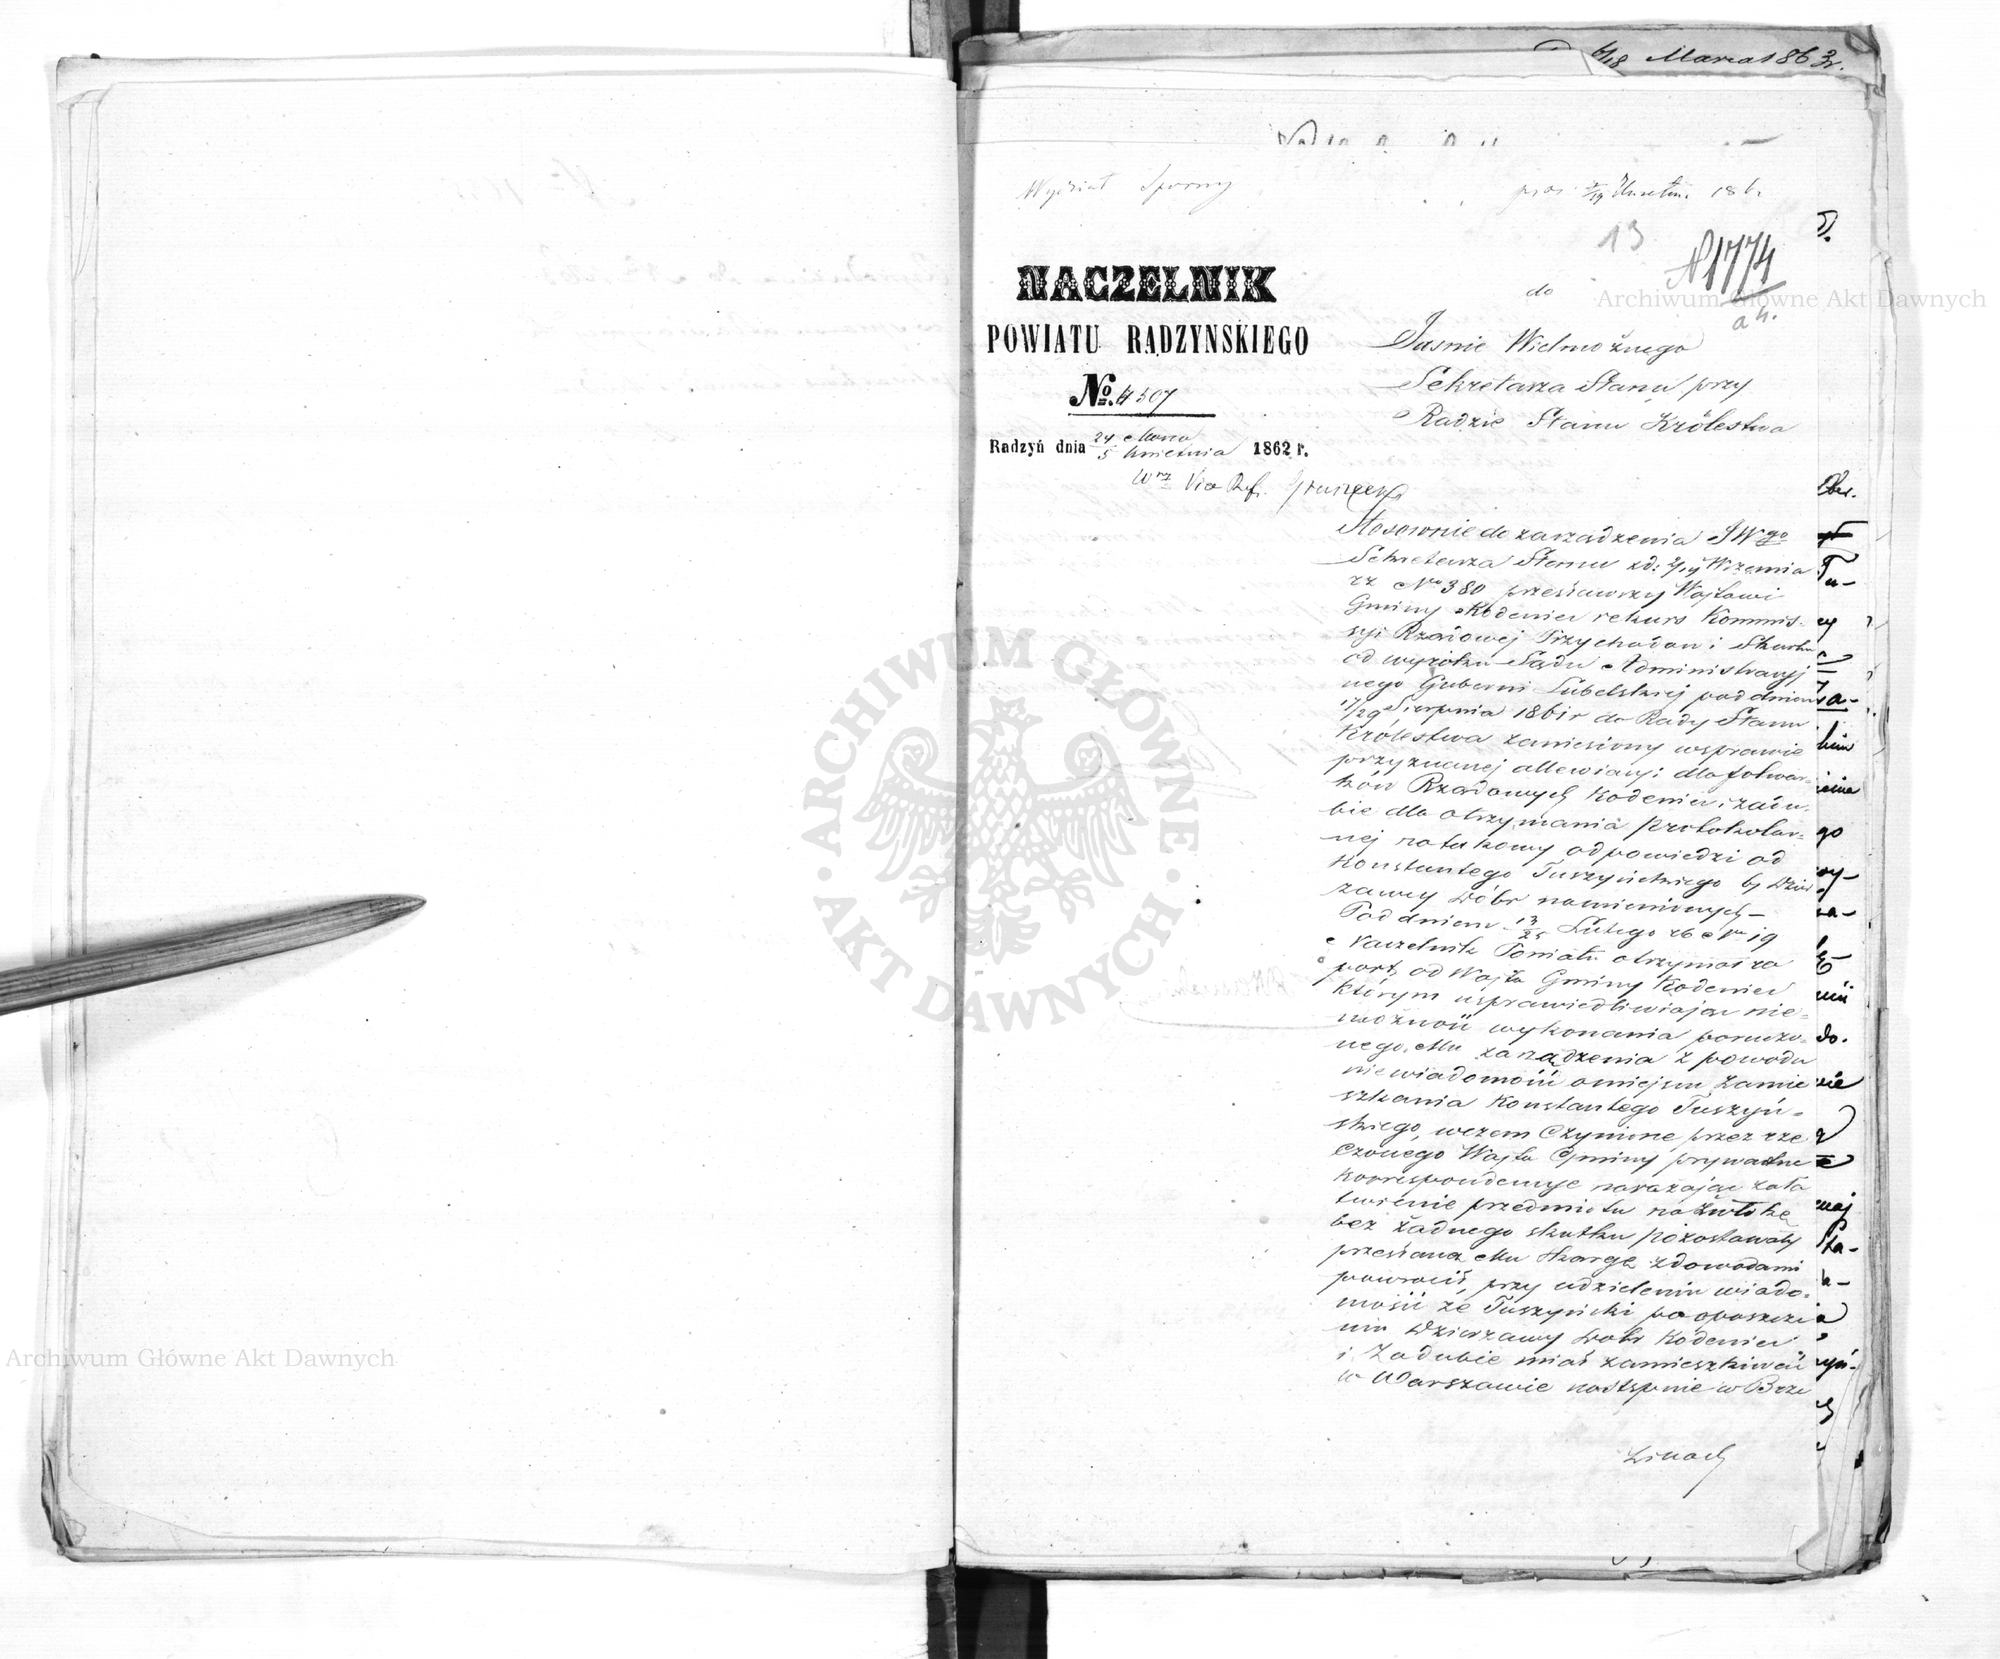 6/18 Marca 1863 r.
Wydział Sporny
13
N 1774
NACZELNIK
POWIATU RADZYNSKIEGO
No. 4507
Radzyń dnia 24 Marca / 5 Kwietnia 1862 r.
do
Jasnie Wielmożnego
Sekretarza Stanu przy
Radzie Stanu Królestwa
Stosownie do zarządzenia JWgo
Sekretarza Stanu zd: 7/19 Wrzesnia
rz No 380 przesławszy Wojtowi
Gminy Kodeniec rekurs Kommis-
syi Rządowej Przychodow i Skarbu
od wyroku Sądu Administracyj
nego Guberni Lubelskiej pod dniem
17/29 Sierpnia 1861 r do Rady Stanu
Królestwa zaniesiony wsprawie
przyznanej allewiacyi dla folwar-
ków Rządowych Kodeniec i Zadu-
bie dla otrzymania protokolar-
nej odpowiedzi od
Konstantego Tuszyńskiego by Dzier
żawcy Dóbr namienionych –
Pod dniem 13/25 Lutego zb No 19
Naczelnik Powiatu otrzymał ra
port od Wojta Gminy Kodeniec
którym usprawiedliwiając nie-
możność wykonania poruczo-
nego Mu zarządzenia z powodu
niewiadomości o miejscu zamie
szkania Konstantego Tuszyń-
skiego, wczem Czynione przez rze
czonego Wojta Gminy prywatne
korrespondencye narażając zała
twienie przedmiotu na zwłokę
bez żadnego skutku pozostawały
przesłaną Mu Skargę zdowodami
powrócił, przy udzieleniu wiado-
mości że Tuszyński po opuszcze
niu Dzierzawy Dobr Kodeniec
i Zadubie miał zamieszkiwać
w Warszawie następnie w Brze
zinach
Archiwum Główne Akt Dawnych
Archiwum Główne Akt Dawnych
ARCHIWUM GŁÓWNE · AKT DAWNYCH ·